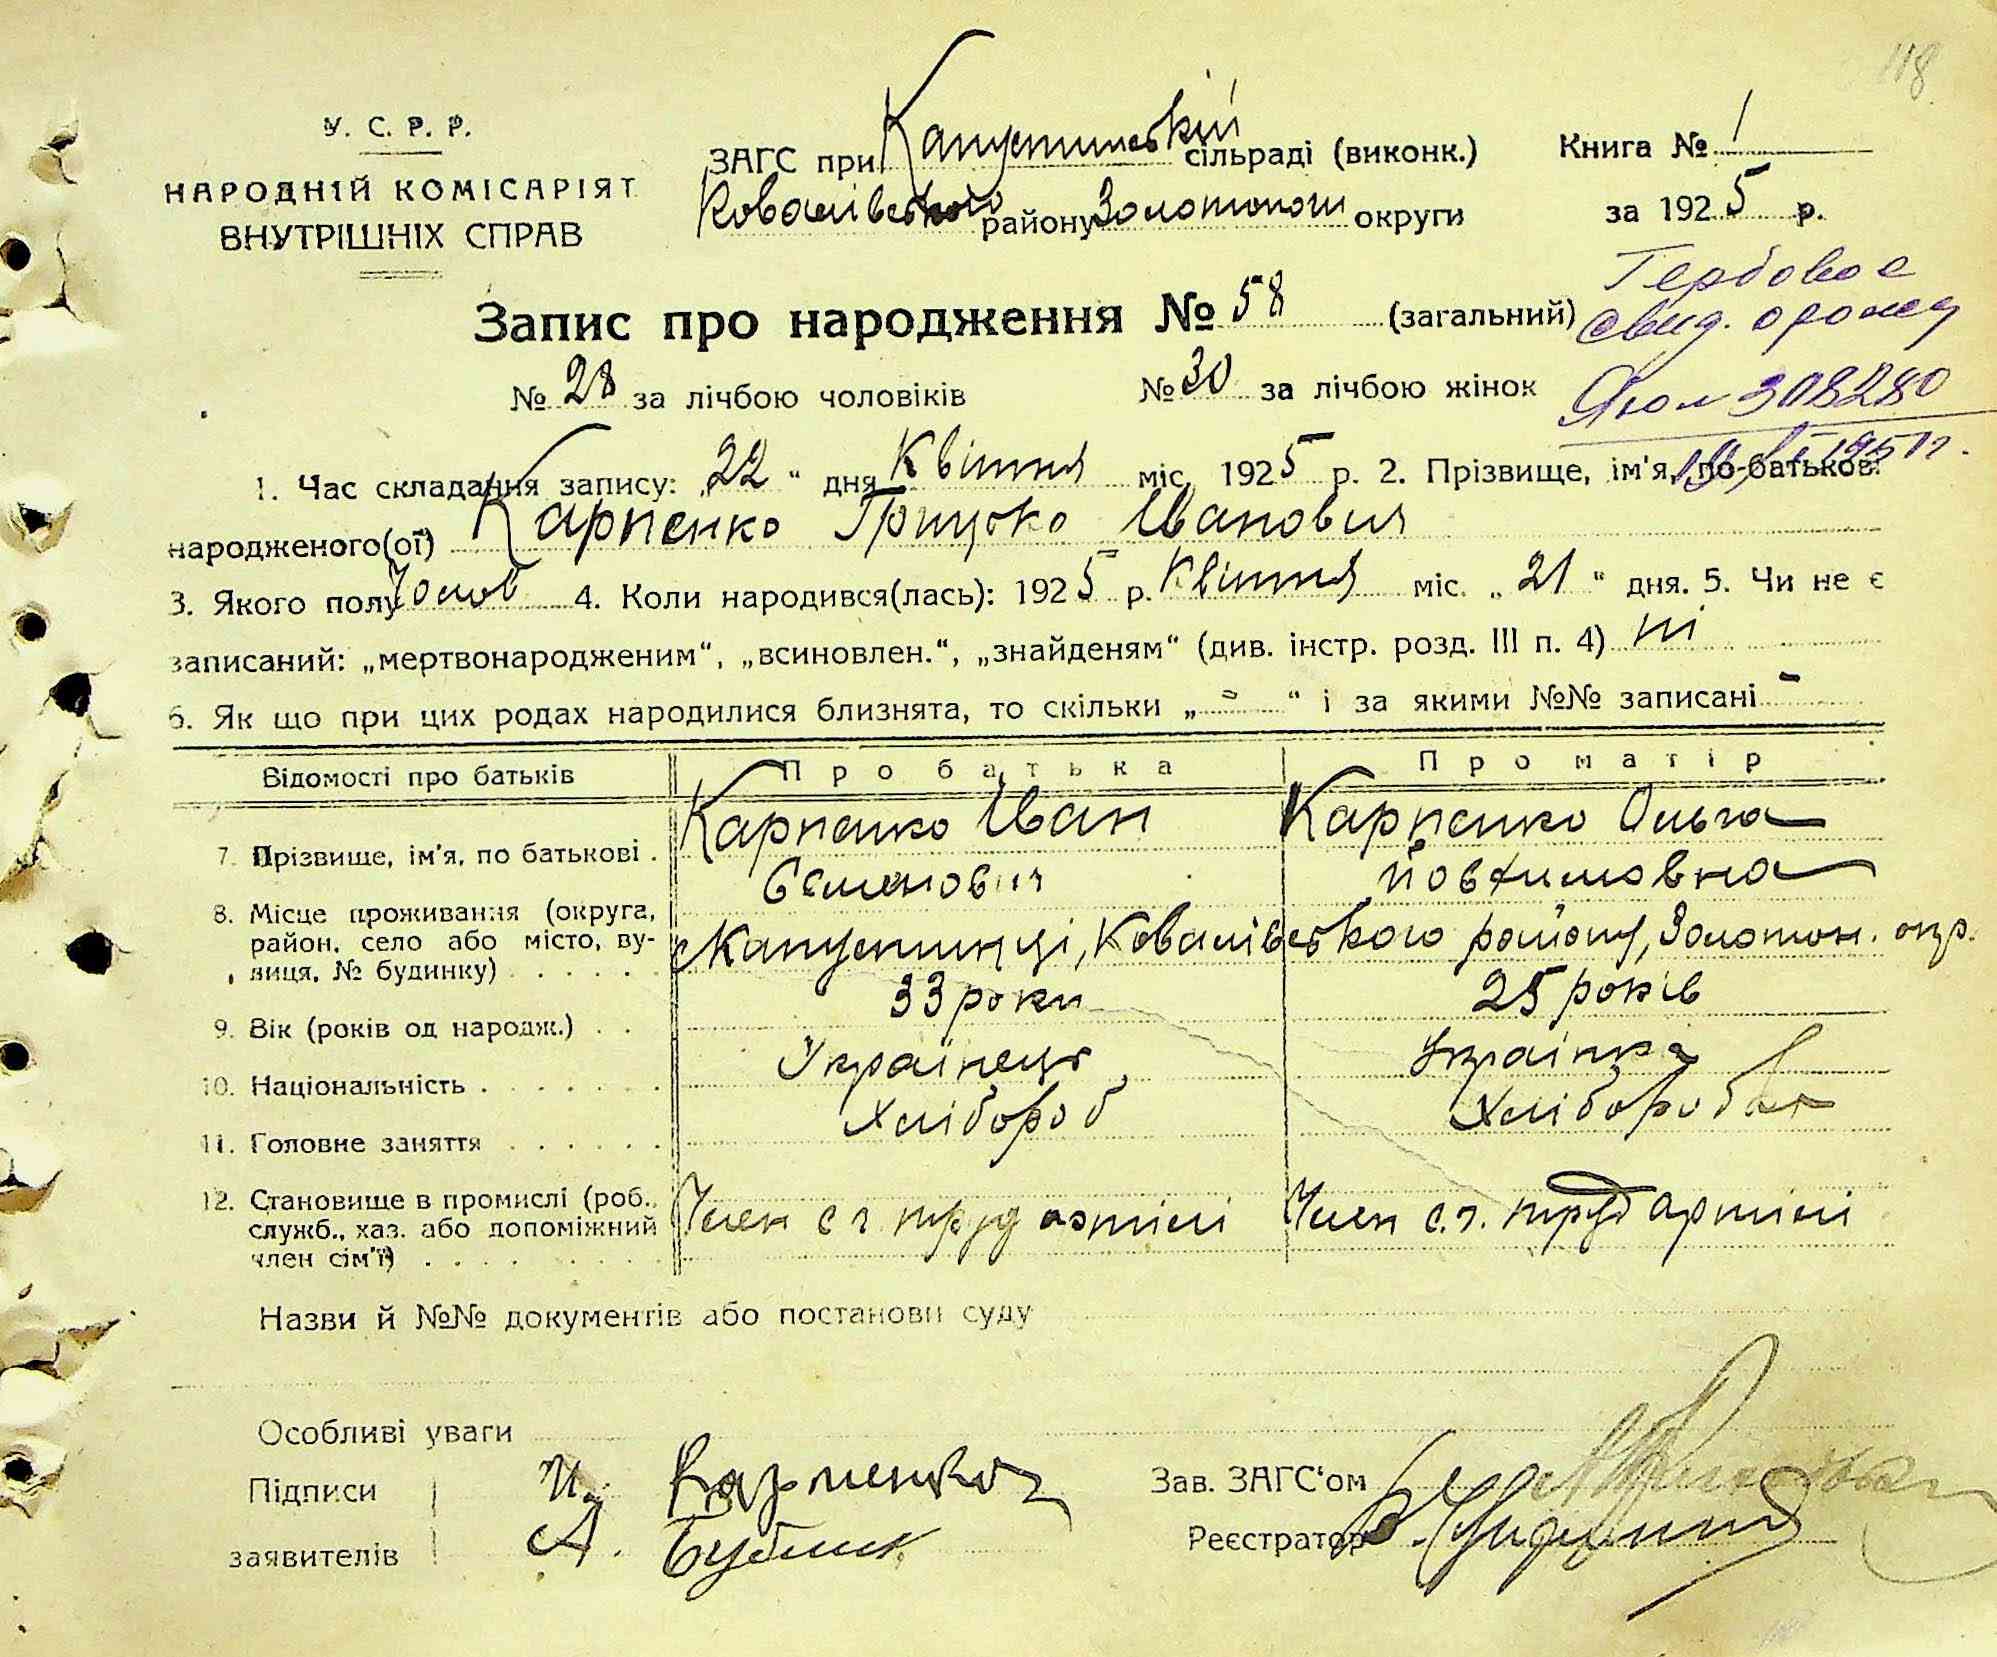 118
У. С. Р. Р.
НАРОДНІЙ КОМІСАРІЯТ
ВНУТРІШНІХ СПРАВ
ЗАГС при Капустинській сільраді (виконк.)
Ковалівського району Золотонош округи
Книга № 1
за 1925 р.
Запис про народження № 58 (загальний)
Гербовое
свид. о рожд
№ 28 за лічбою чоловіків № 30 за лічбою жінок
308280
1951г.
1. Час складання запису: „22“ дня Квітня міс. 1925 р. 2. Прізвище, ім'я, по-батькові
народженого(ої) Карпенко Грицько Іванович
3. Якого полу Чолов 4. Коли народився(лась): 1925 р. Квітня міс. „21“ дня. 5. Чи не є
записаний: „мертвонародженим“, „всиновлен.“, „знайденям“ (див. інстр. розд. III п. 4) ні
6. Як що при цих родах народилися близнята, то скільки „-“ і за якими №№ записані -
Відомості про батьків Про батька Про матір
7. Прізвище, ім'я, по батькові . Карпенко Іван Карпенко Ольга
Семенович Йовхимовна
8. Місце проживання (округа, район, село або місто, вулиця, № будинку) Капустинці, Ковалівського району, Золотон. окр.
9. Вік (років од народж.) . . 33 роки 25 років
10. Національність . . . . . . . Українець Українка
11. Головне заняття . . . . . . Хлібороб Хліборобка
12. Становище в промислі (роб., служб., хаз. або допоміжний член сім'ї) Член с г труд артілі Член с.г. труд артілі
Назви й №№ документів або постанови суду
Особливі уваги
Підписи И. Карпенко Зав. ЗАГС'ом
заявителів А. Бублик Реєстратор